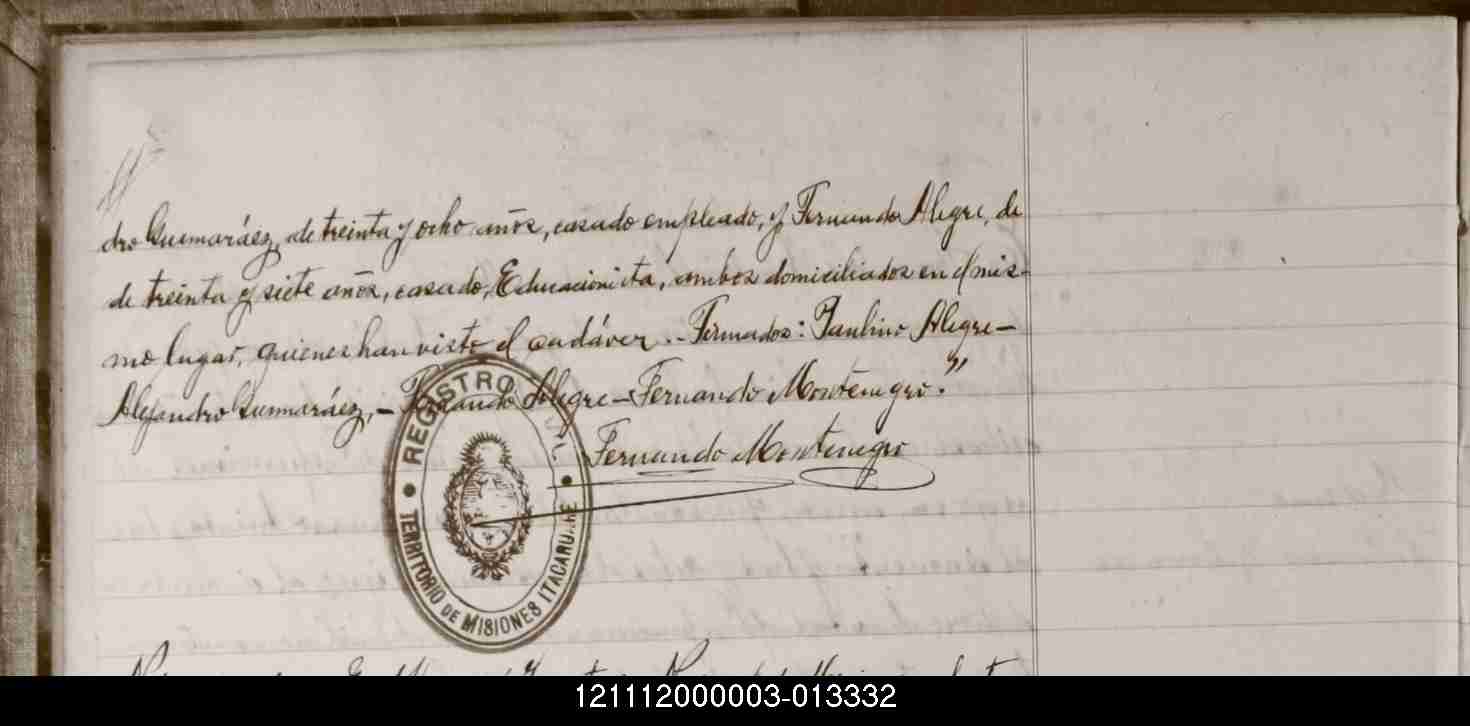 dro Guimaráez, de treinta y ocho años, casado empleado, y Fernando Alegre, de
de treinta y siete años, casado, Educacionista, ambos domiciliados en el mis-
mo lugar, quienes han visto el cadáver.- Firmados: Paulino Alegre-
Alejandro Guimaráez,- Fernando Alegre-Fernando Montenegro."
Fernando Montenegro
REGISTRO
TERRITORIO DE MISIONES ITACARUARE
121112000003-013332